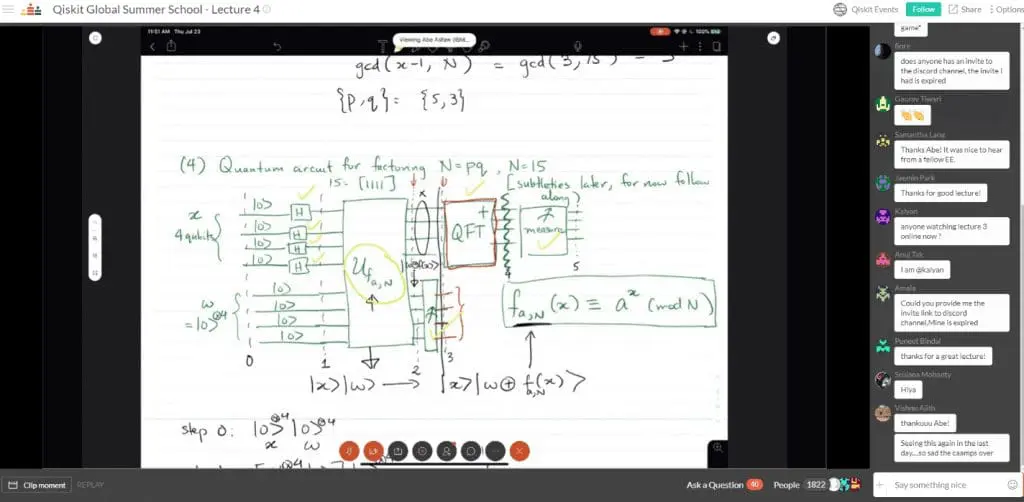 Qiskit Global Summer School - Lecture 4
Qiskit Events
Follow
Share
Options
11:51 AM Thu Jul 23
Viewing Abe Asfaw (IBM...
100%
gcd(x-1, N) = gcd(3,15) = 3
{p,q} = {5,3}
(4) Quantum circuit for factoring N=pq, N=15
15 = [1111]
[subtleties later, for now follow along]
x
4 qubits
|0> H
|0> H
|0> H
|0> H
U f a,N
x
QFT +
measure
w
= |0>⊗4
|0>
|0>
|0>
|0>
f a,N (x) ≡ a^x (mod N)
0
1
2
3
4
5
|x>|w> → |x>|w ⊕ f a,N (x)>
step 0: |0>⊗4 |0>⊗4
x w
game"
fiore
does anyone has an invite to
the discord channel, the invite I
had is expired
Gaurav Tiwari
👏👏
Samantha Lang
Thanks Abe! It was nice to hear
from a fellow EE.
Jaemin Park
Thanks for good lecture!
Kalyan
anyone watching lecture 3
online now ?
Anuj Tidk
I am @kalyan
Amala
Could you provide me the
invite link to discord
channel,Mine is expired
Puneet Bindal
thanks for a great lecture!
Srijana Mohanty
Hiya
Vishnu Ajith
thankuuu Abe!
Seeing this again in the last
day,...so sad the caamps over
Clip moment
REPLAY
Ask a Question 40
People 1822
Say something nice